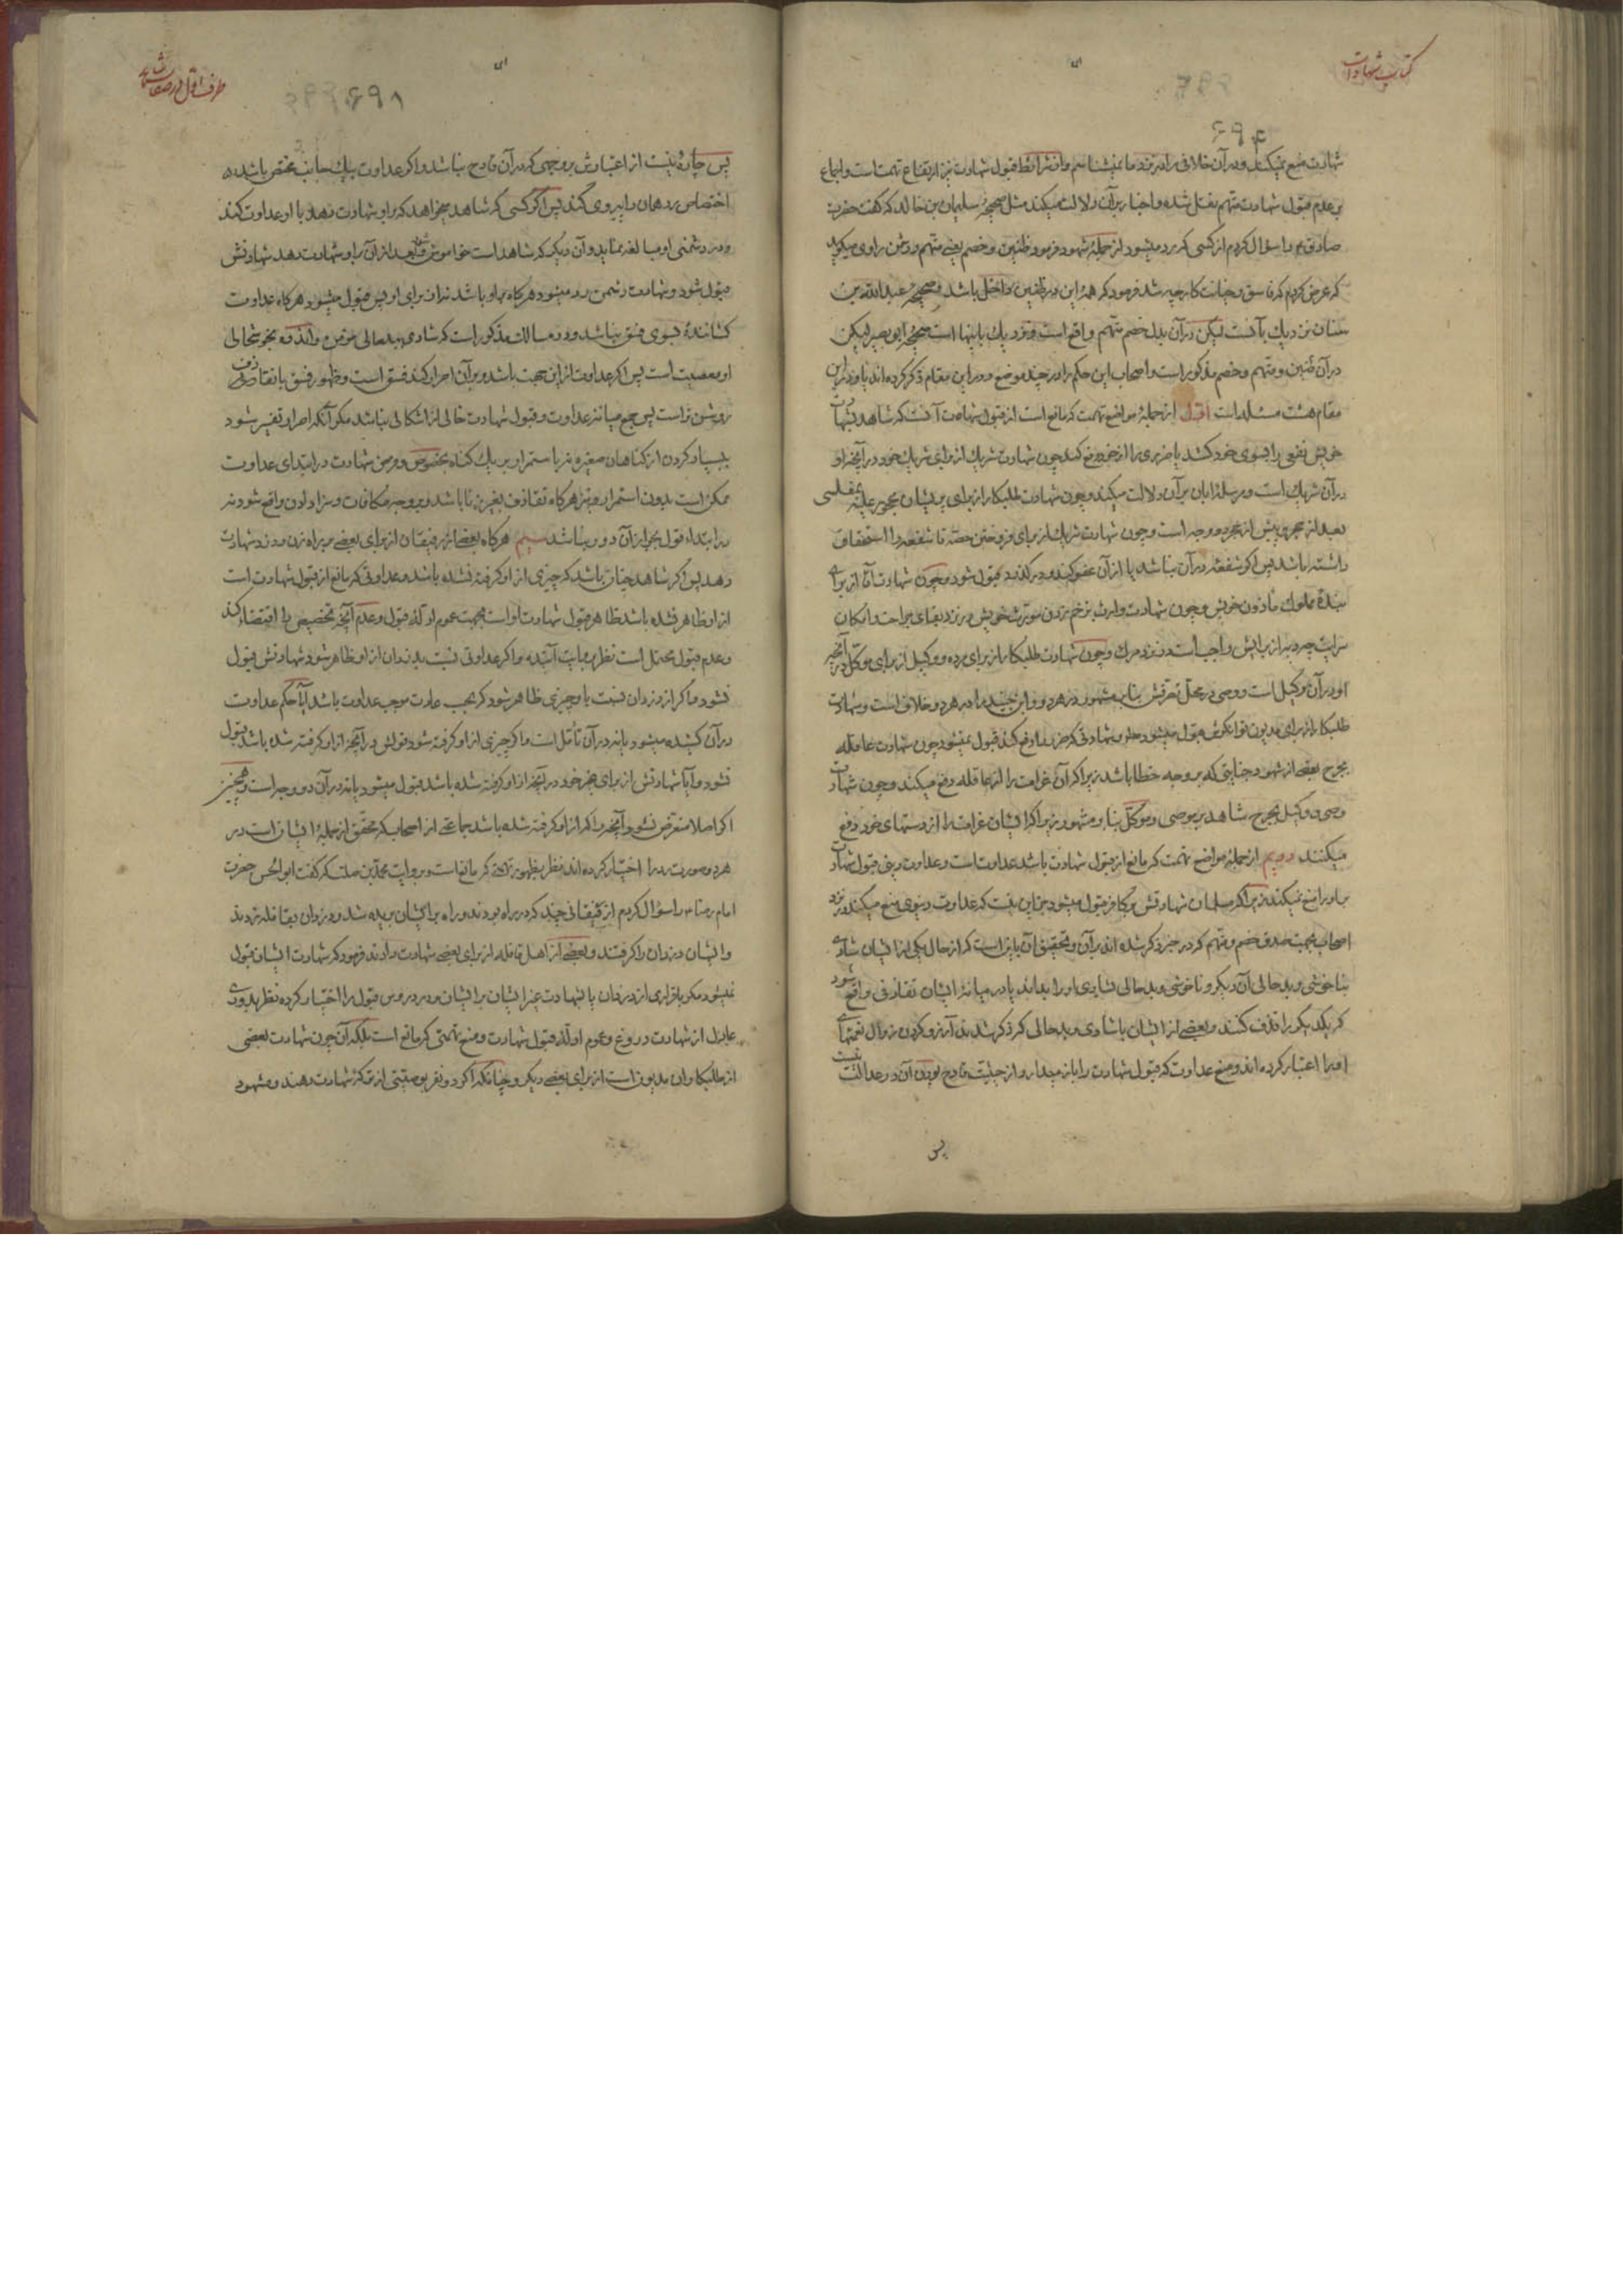 کتاب شهادات
۶۹۴
شهادت منع نمیکند و در آن خلافی برادر نزد ما نمیشناسم واز شرائط قبول شهادت نیز ارتفاع تهمتست واجماع
بر عدم قبول شهادت متهم نقل شده واخبار بر آن دلالت میکند مثل صحیحه سلیمان بن خالد که گفت حضرت
صادق ع را سؤال کردم از کسی که رد میشود از جمله شهود فرمود ظنین وخصم یعنی متهم ودشمن راوی میگوید
که عرض کردم که فاسق وخیانت کار چه شد فرمود که همه این در ظنین داخل باشد وصحیحه عبدالله بن
سنان نزدیک بآنست لیکن در آن بدل خصم متهم واقع است ونزدیک باینها است صحیحه ابو بصیر لیکن
در آن ظنین ومتهم وخصم مذکور است واصحاب این حکم را در چند موضع ودر این مقام ذکر کرده اند ودر این
مقام هشت مسئله است اول از جمله مواضع تهمت که مانع است از قبول شهادت آنست که شاهد بشهادت
خویش نفعی را بسوی خود کشد یا ضرری را از خود دفع کند چون شهادت شریک از برای شریک خود در آنچه او
در آن شریک است ومرسله ابان بر آن دلالت میکند وچون شهادت طلبکار از برای پریشان محجور علیه بمفلسی
بعد از حجر وپیش از حجر دو وجه است وچون شهادت شریک از برای فروختن حصه تا شفعه را استحقاق
داشته باشد پس اگر شفعه در آن نباشد یا از آن عفو کند ودر گذرد قبول شود وچون شهادت آقا از برای
بنده مملوک مأذون خویش وچون شهادت وارث بزخم زدن مورث خویش در نزد بقای جراحت وامکان
سرایت چه دیه از برایش واجب است در نزد مرگ وچون شهادت طلبکار از برای مرده ووکیل از برای موکل در آنچه
او در آن وکیل است ووصی در محل تصرفش بنابر مشهور در هر دو وابن جنید را در هر دو خلاف است وشهادت
طلبکار از برای مدیون توانگرش قبول میشود وشهادتی که ضرر را دفع کند قبول نمیشود چون شهادت عاقله
بجرح بعضی از شهود جنایتی که بر وجه خطا باشد زیرا که آن غرامت را از عاقله دفع میکند وچون شهادت
وصی ووکیل بجرح شاهد بر موصی وموکل بنابر مشهور زیرا که ایشان غرامت را از دستهای خود دفع
میکنند دویم از جمله مواضع تهمت که مانع از قبول شهادت باشد عداوتست وعداوت دینی قبول شهادت
برادر را منع نمیکند زیرا که مسلمان شهادتش بر کافر قبول میشود جز این نیست که عداوت دنیوی منع میکند در نزد
اصحاب بجهت صدق خصم ومتهم که در خبر ذکر شده اند بر آن وتحقیق آن باینست که از حال یکی از ایشان شادی
بناخوشی وبد حالی آن دیگر وناخوشی وبد حالی بشادی او را بدانند یا در میانه ایشان تقاذف واقع شود
که یکدیگر را قذف کنند وبعضی از ایشان باشادی وبد حالی که ذکر شد آرزو کردن زوال نعمتهای
او را اعتبار کرده اند ومنع عداوت که قبول شهادت را باز میدارد از حیثیت قادح بودن آن در عدالت نیست
پس
طرف اول در صفات شاهد
۶۹۸
پس چاره نیست از اعتبارش بر وجهی که در آن قادح نباشد واگر عداوت بیک جانب مختص باشد
اختصاص رد همان را پیروی کند پس اگر کسی که شاهد میخواهد که بر او شهادت دهد با او عداوت کند
ودر دشمنی او مبالغه نماید وآن دیگر که شاهد است خاموش باشد بعد از آن بر او شهادت دهد شهادتش
قبول شود وشهادت دشمن رد میشود هرگاه بر او باشد نه از برای او پس قبول میشود هرگاه عداوت
کشاننده بسوی فسق نباشد ودر مسالک مذکور است که شادی ببدحالی مؤمن واندوه بخوشحالی
او معصیت است پس اگر عداوت از این جهت باشد وبر آن اصرار کند فسق است وظهور فسق با تقاذف
روشن تر است پس جمع میانه عداوت وقبول شهادت خالی از اشکالی نباشد مگر آنکه اصرار تفسیر شود
ببسیار کردن از گناهان صغیره نه باستمرار بر یک گناه بخصوص وفرض شهادت در ابتدای عداوت
ممکن است بدون استمرار ونیز هرگاه تقاذف بغیر زنا باشد وبر وجه مکافات وسزا دادن واقع شود نه
در ابتداء قول بجواز آن دور نباشد سیم هرگاه بعضی از رفیقان از برای بعضی بر راه زن ودزد شهادت
دهد پس اگر شاهد چنان باشد که چیزی از او گرفته نشده باشد وعداوتی که مانع از قبول شهادت است
از او ظاهر نشده باشد ظاهر قبول شهادت اوست بجهت عموم ادله قبول وعدم آنچه تخصیص را اقتضاء کند
وعدم قبول محتمل است نظر بروایت آینده واگر عداوتی نسبت بدزدان از او ظاهر شود شهادتش قبول
نشود واگر از دزدان نسبت باو چیزی ظاهر شود که بحسب عادت موجب عداوت باشد آیا حکم عداوت
در آن کشیده میشود یا نه در آن تأمل است واگر چیزی از او گرفته شود قولش در آنچه از او گرفته شده باشد قبول
نشود وآیا شهادتش از برای غیر خود در آنچه از او گرفته شده باشد قبول میشود یا نه در آن دو وجه است وهمچنین
اگر اصلا متعرض نشود آنچه را که از او گرفته شده باشد جماعتی از اصحاب که محقق از جمله ایشانست در
هر دو صورت رد را اختیار کرده اند نظر بظهور تهمتی که مانع است وبروایت محمد بن صلت که گفت ابوالحسن حضرت
امام رضا ع را سؤال کردم از رفیقانی چند که در راه بودند وراه بر ایشان بریده شد ودزدان بقافله زدند
وایشان دزدان را گرفتند وبعضی از اهل قافله از برای بعضی شهادت دادند فرمود که شهادت ایشان قبول
نمیشود مگر باقراری از دزدان یا بشهادت غیر ایشان بر ایشان ودر دروس قبول را اختیار کرده نظر بدوری
عادل از شهادت دروغ وعموم ادله قبول شهادت ومنع تهمتی که مانع است بلکه آن چون شهادت بعضی
از طلبکاران مدیون است از برای بعضی دیگر وچنانکه اگر دو نفر بوصیتی از ترکه شهادت دهند ومشهود